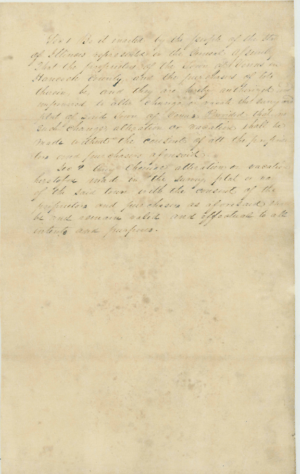 Sec 1 Be it enacted by the people of the State
of Illinois represented in the General Assembly
That the proprietors of the Town of in
Hancock County and the purchasers of lots
therein be, and they are hereby authorised &
empowered to alter change or vacate the survey or
plat of said town of Provided that no
such change alteration or vacation shall be
made without the consent of all the proprie
tors and purchasers aforesaid
Sec 2 Any change alteration or vacation
made in the survey plat or
of the said town with the consent of the
proprietors and purchasers as aforesaid
be and remain valid and effectual to all
intents and purposes.